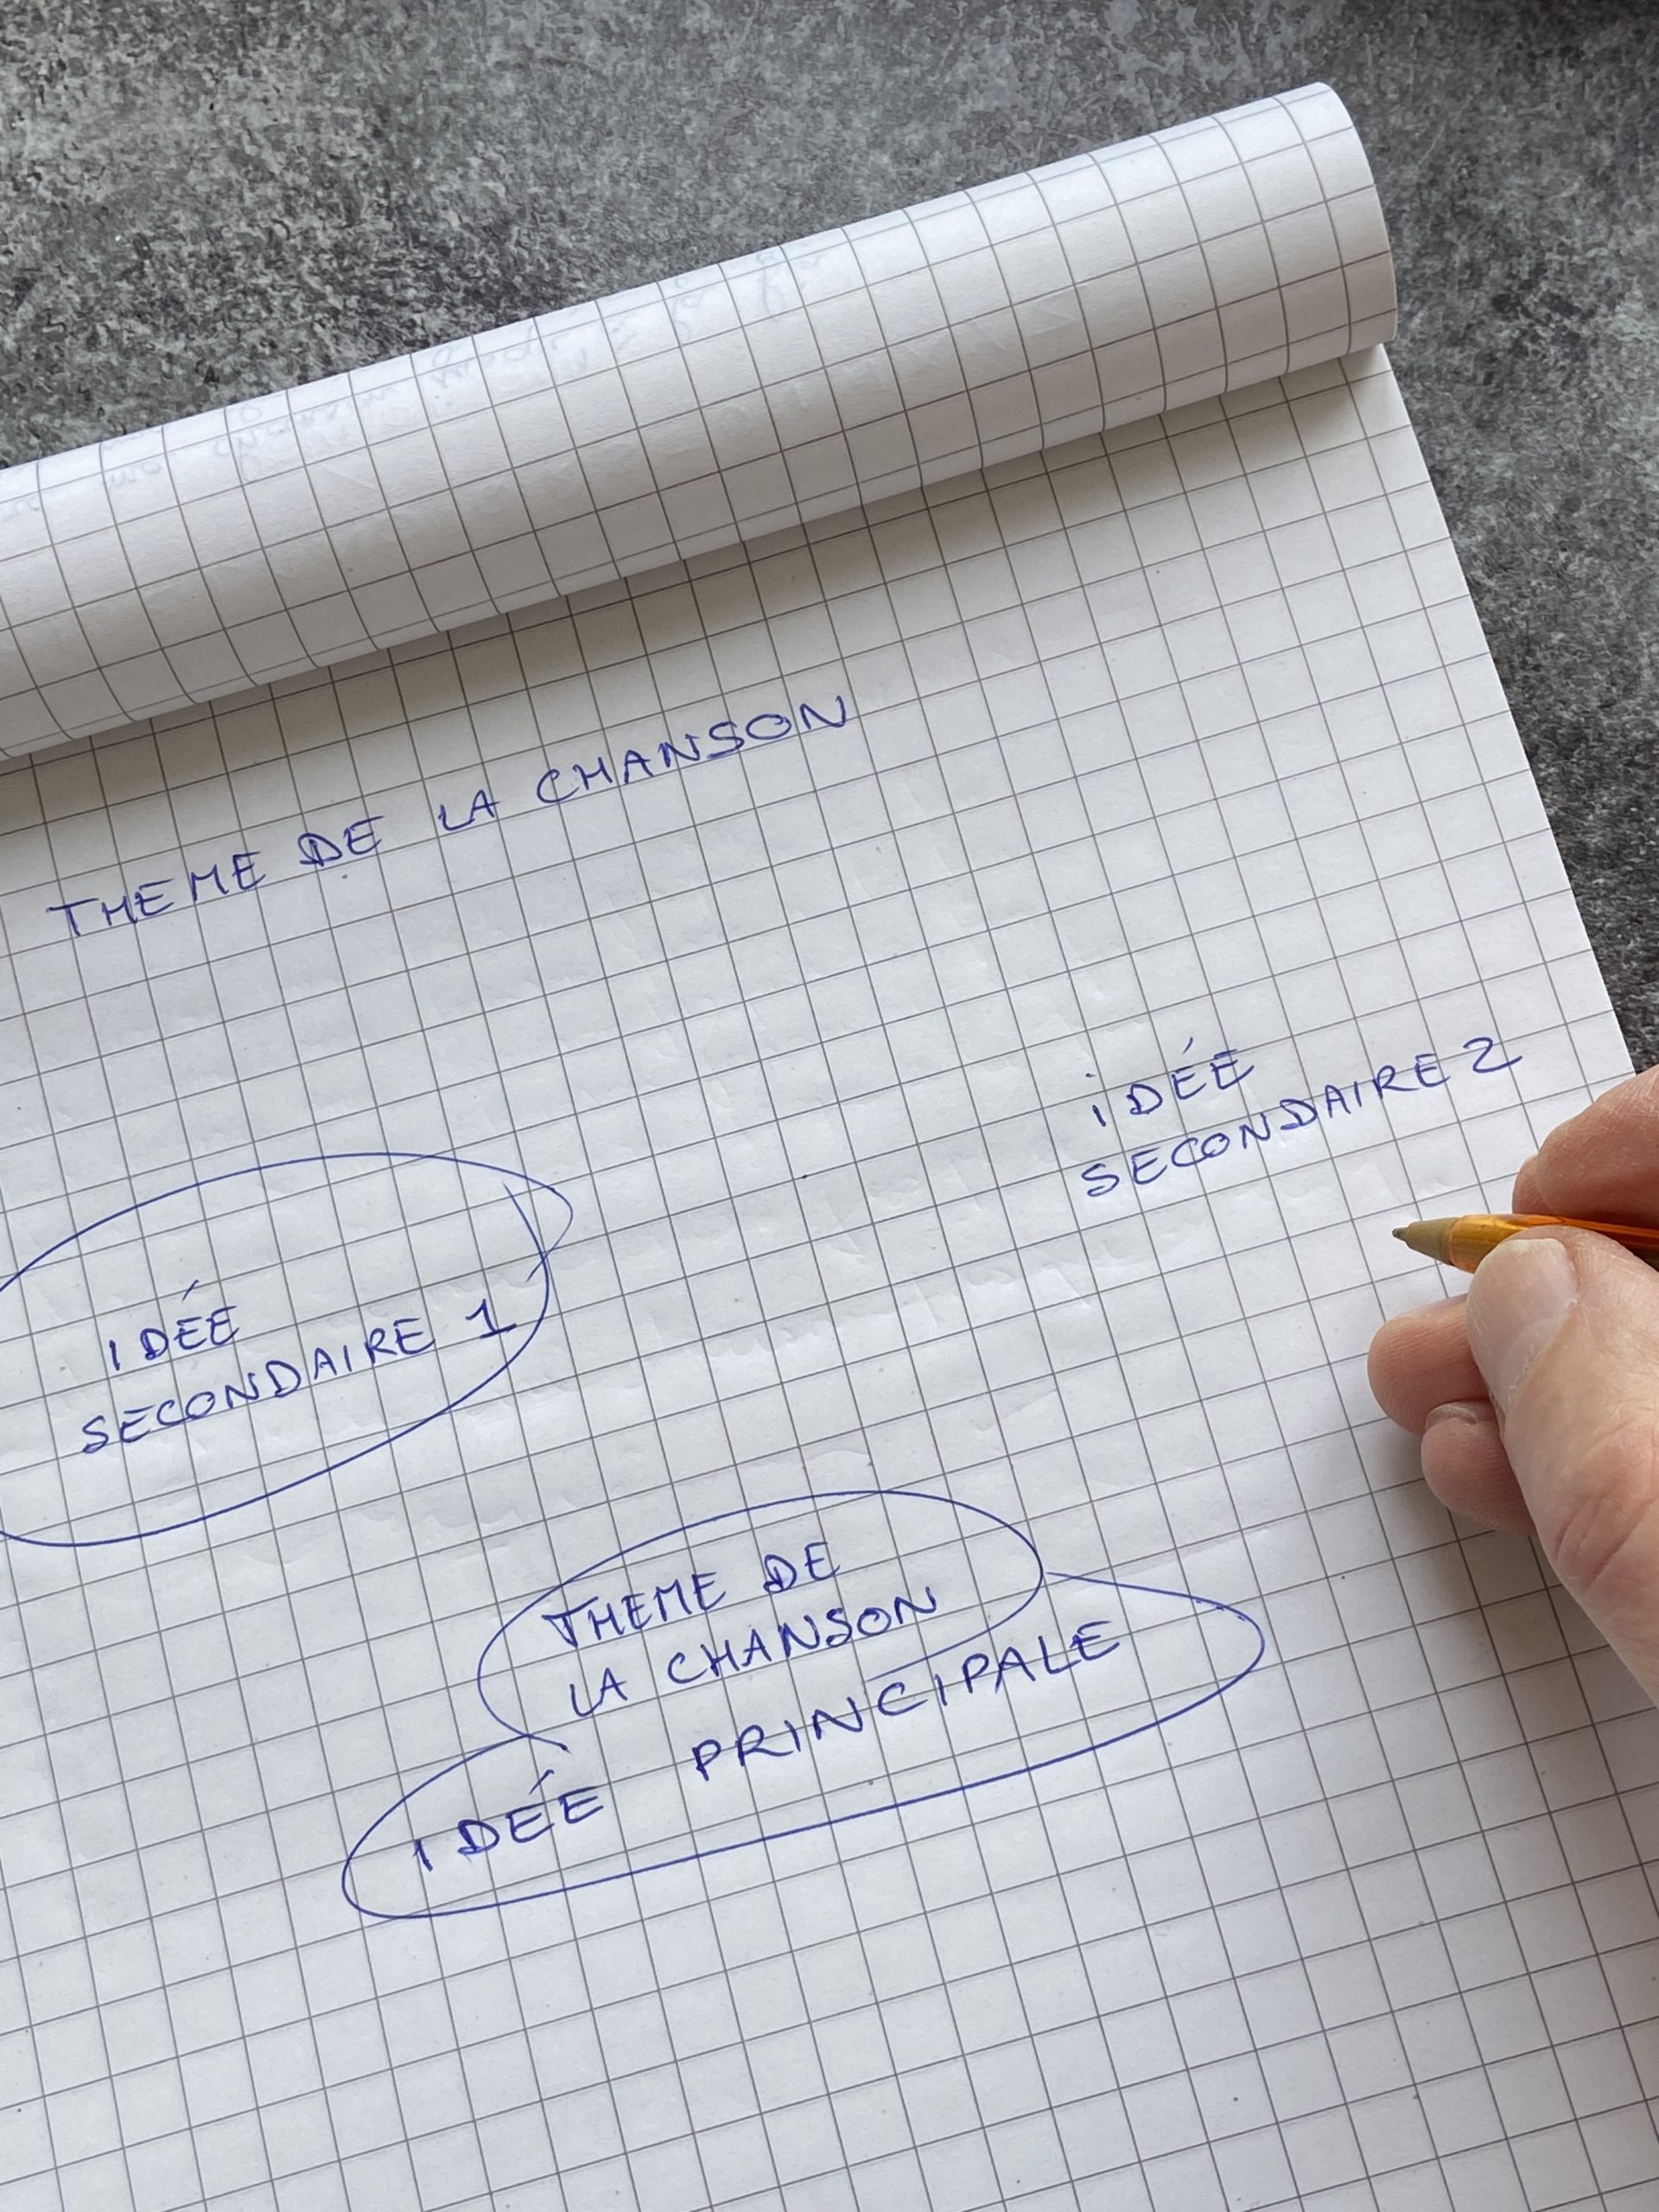 THEME DE LA CHANSON
iDÉE
SECONDAIRE 2
IDÉE
SECONDAIRE 1
THEME DE
LA CHANSON
IDÉE PRINCIPALE